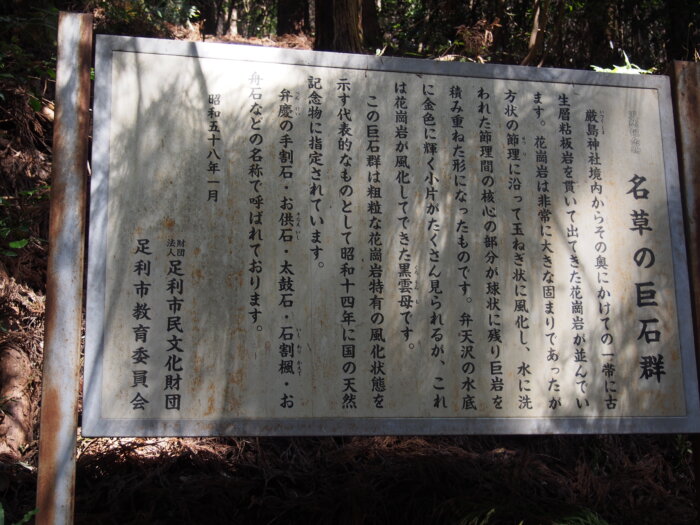 名草の巨石群
厳島神社境内からその奥にかけての一帯に古
生層粘板岩を貫いて出てきた花崗岩が並んでい
ます。花崗岩は非常に大きな固まりであったが
方状の節理に沿って玉ねぎ状に風化し、水に洗
われた節理間の核心の部分が球状に残り巨岩を
積み重ねた形になったものです。弁天沢の水底
に金色に輝く小片がたくさん見られるが、これ
は花崗岩が風化してできた黒雲母です。
この巨石群は粗粒な花崗岩特有の風化状態を
示す代表的なものとして昭和十四年に国の天然
記念物に指定されています。
弁慶の手割石・お供石・太鼓石・石割楓・お
舟石などの名称で呼ばれております。
昭和五十八年一月
財団法人 足利市民文化財団
足利市教育委員会